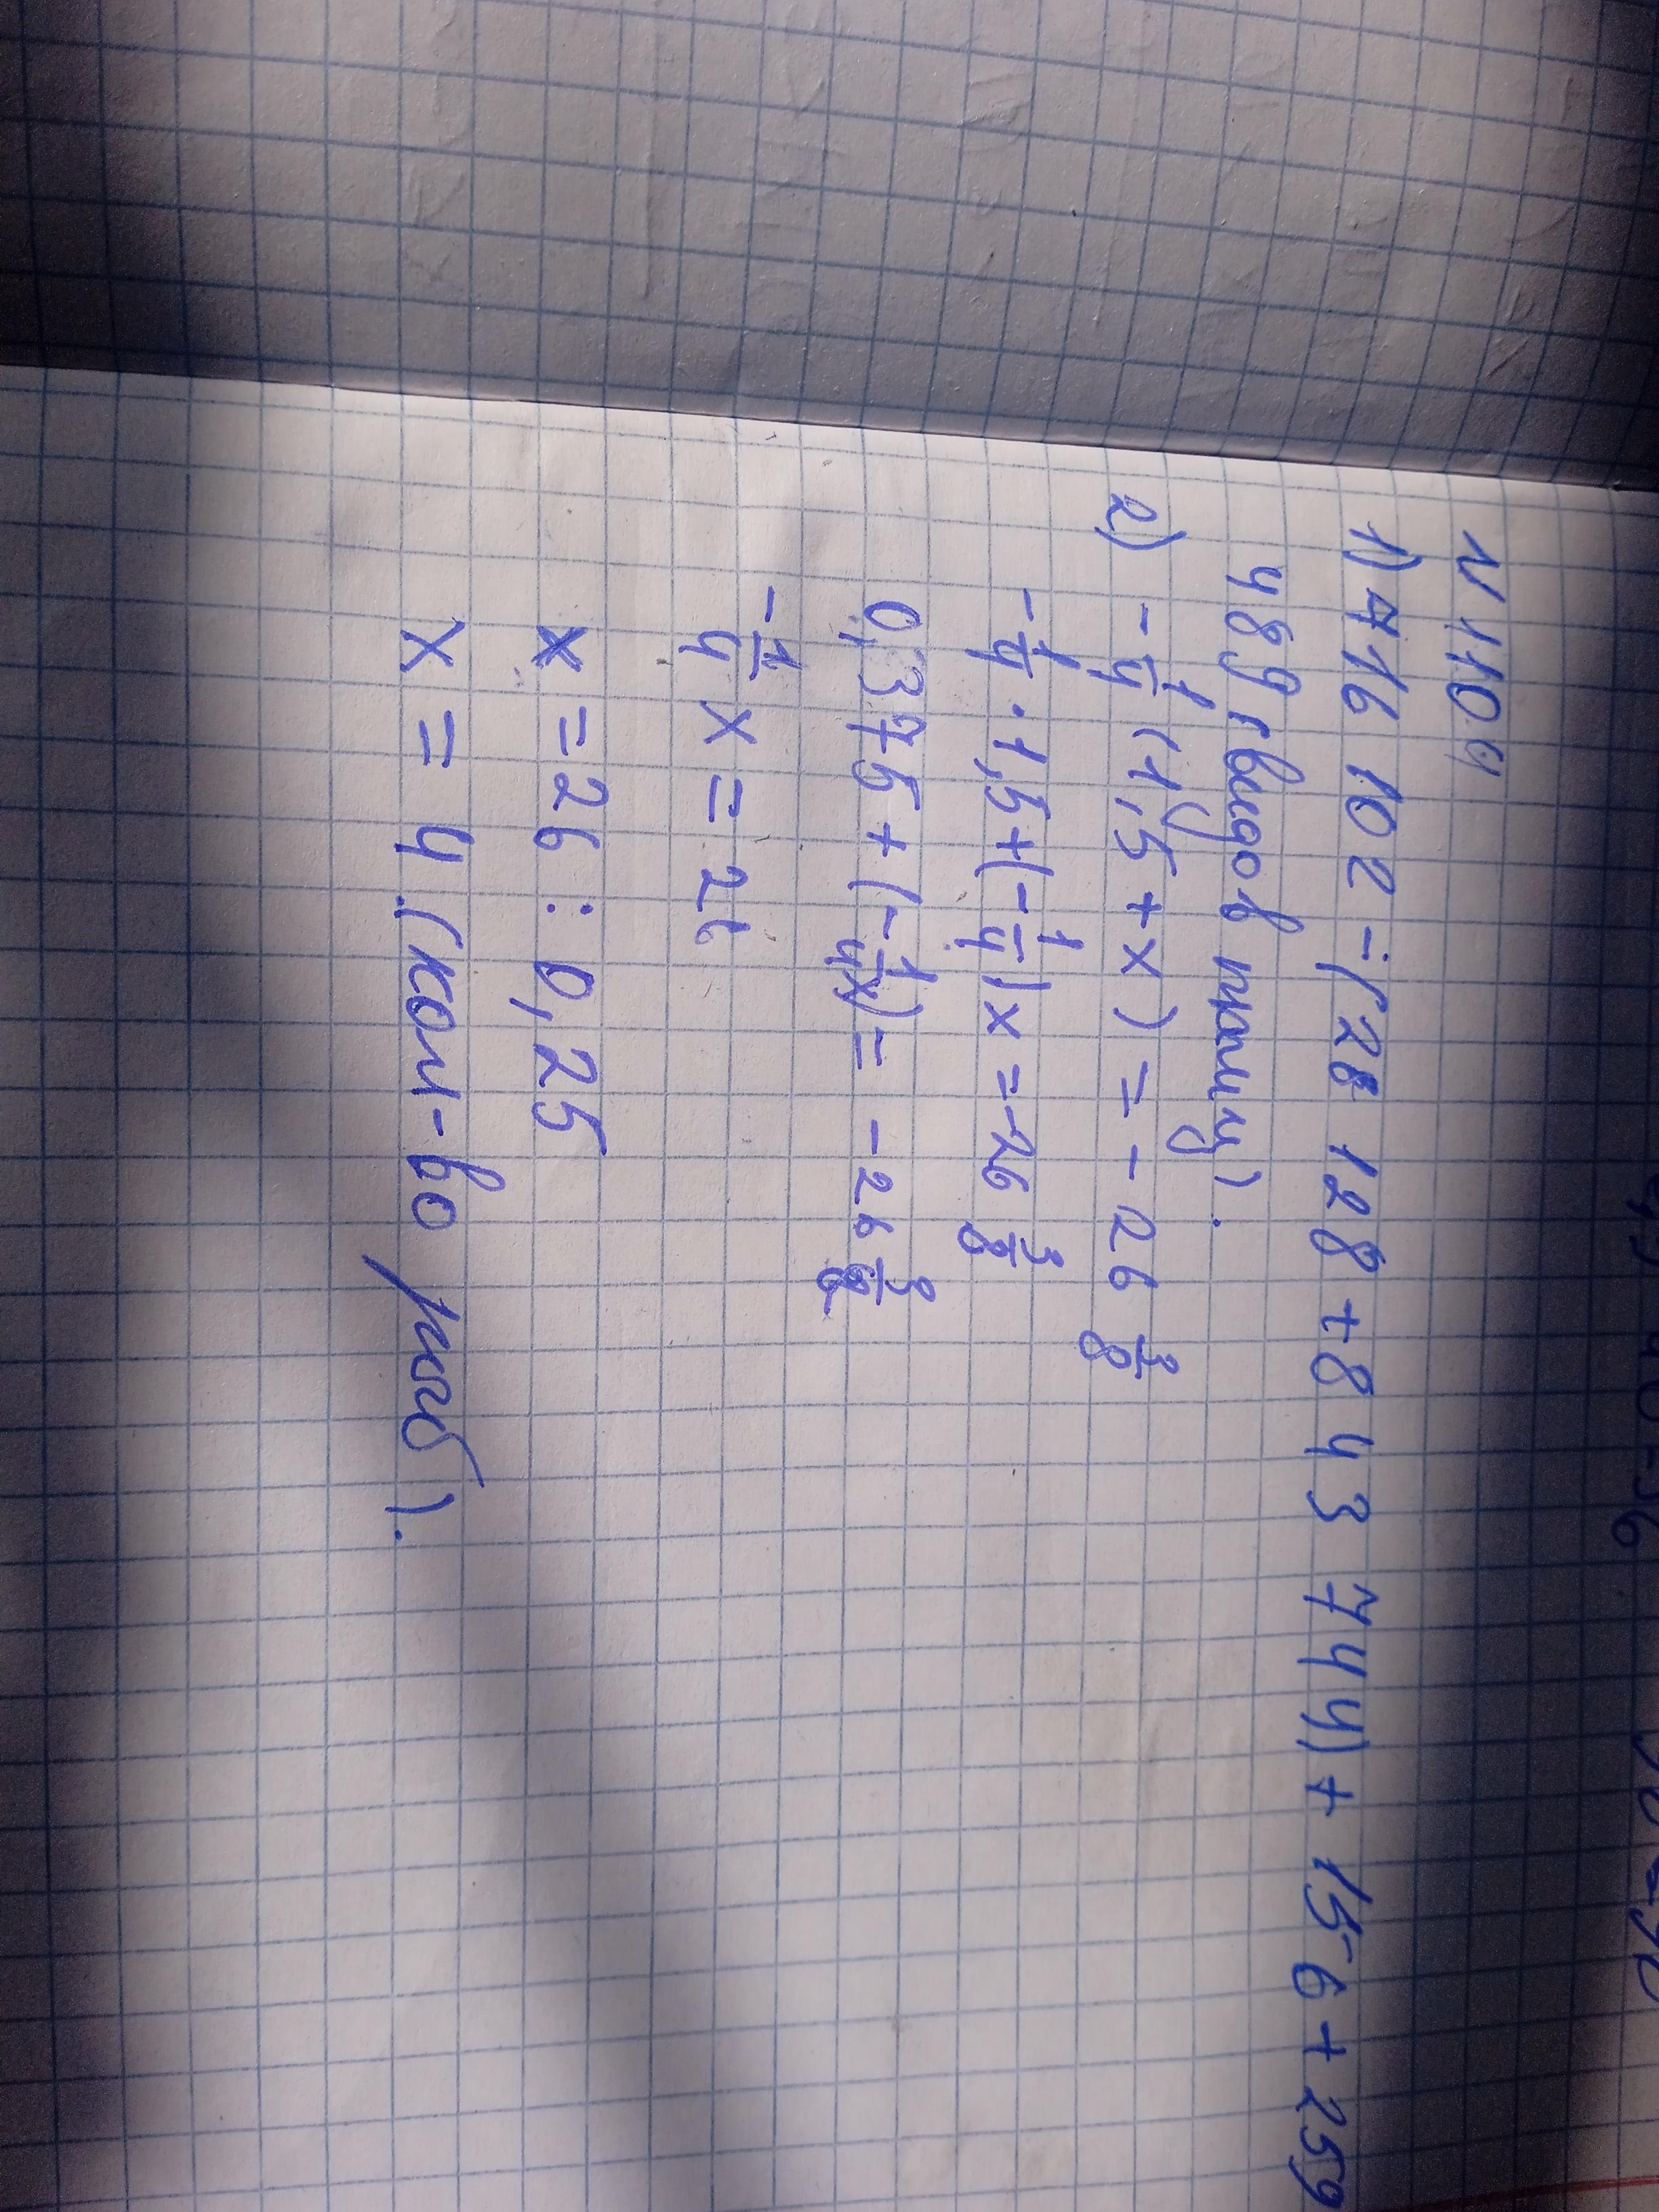 N 1104
1) 716 102 -(28 128 + 8 43 744) + 15 6 + 259
489 (видов птиц).
2) -1/4 (1,5 + x) = -26 3/8
-1/4 · 1,5 + (-1/4)x = -26 3/8
0,375 + (-1/4x) = -26 3/8
-1/4 x = 26
x = 26 : 0,25
x = 4 (кол-во рыб).